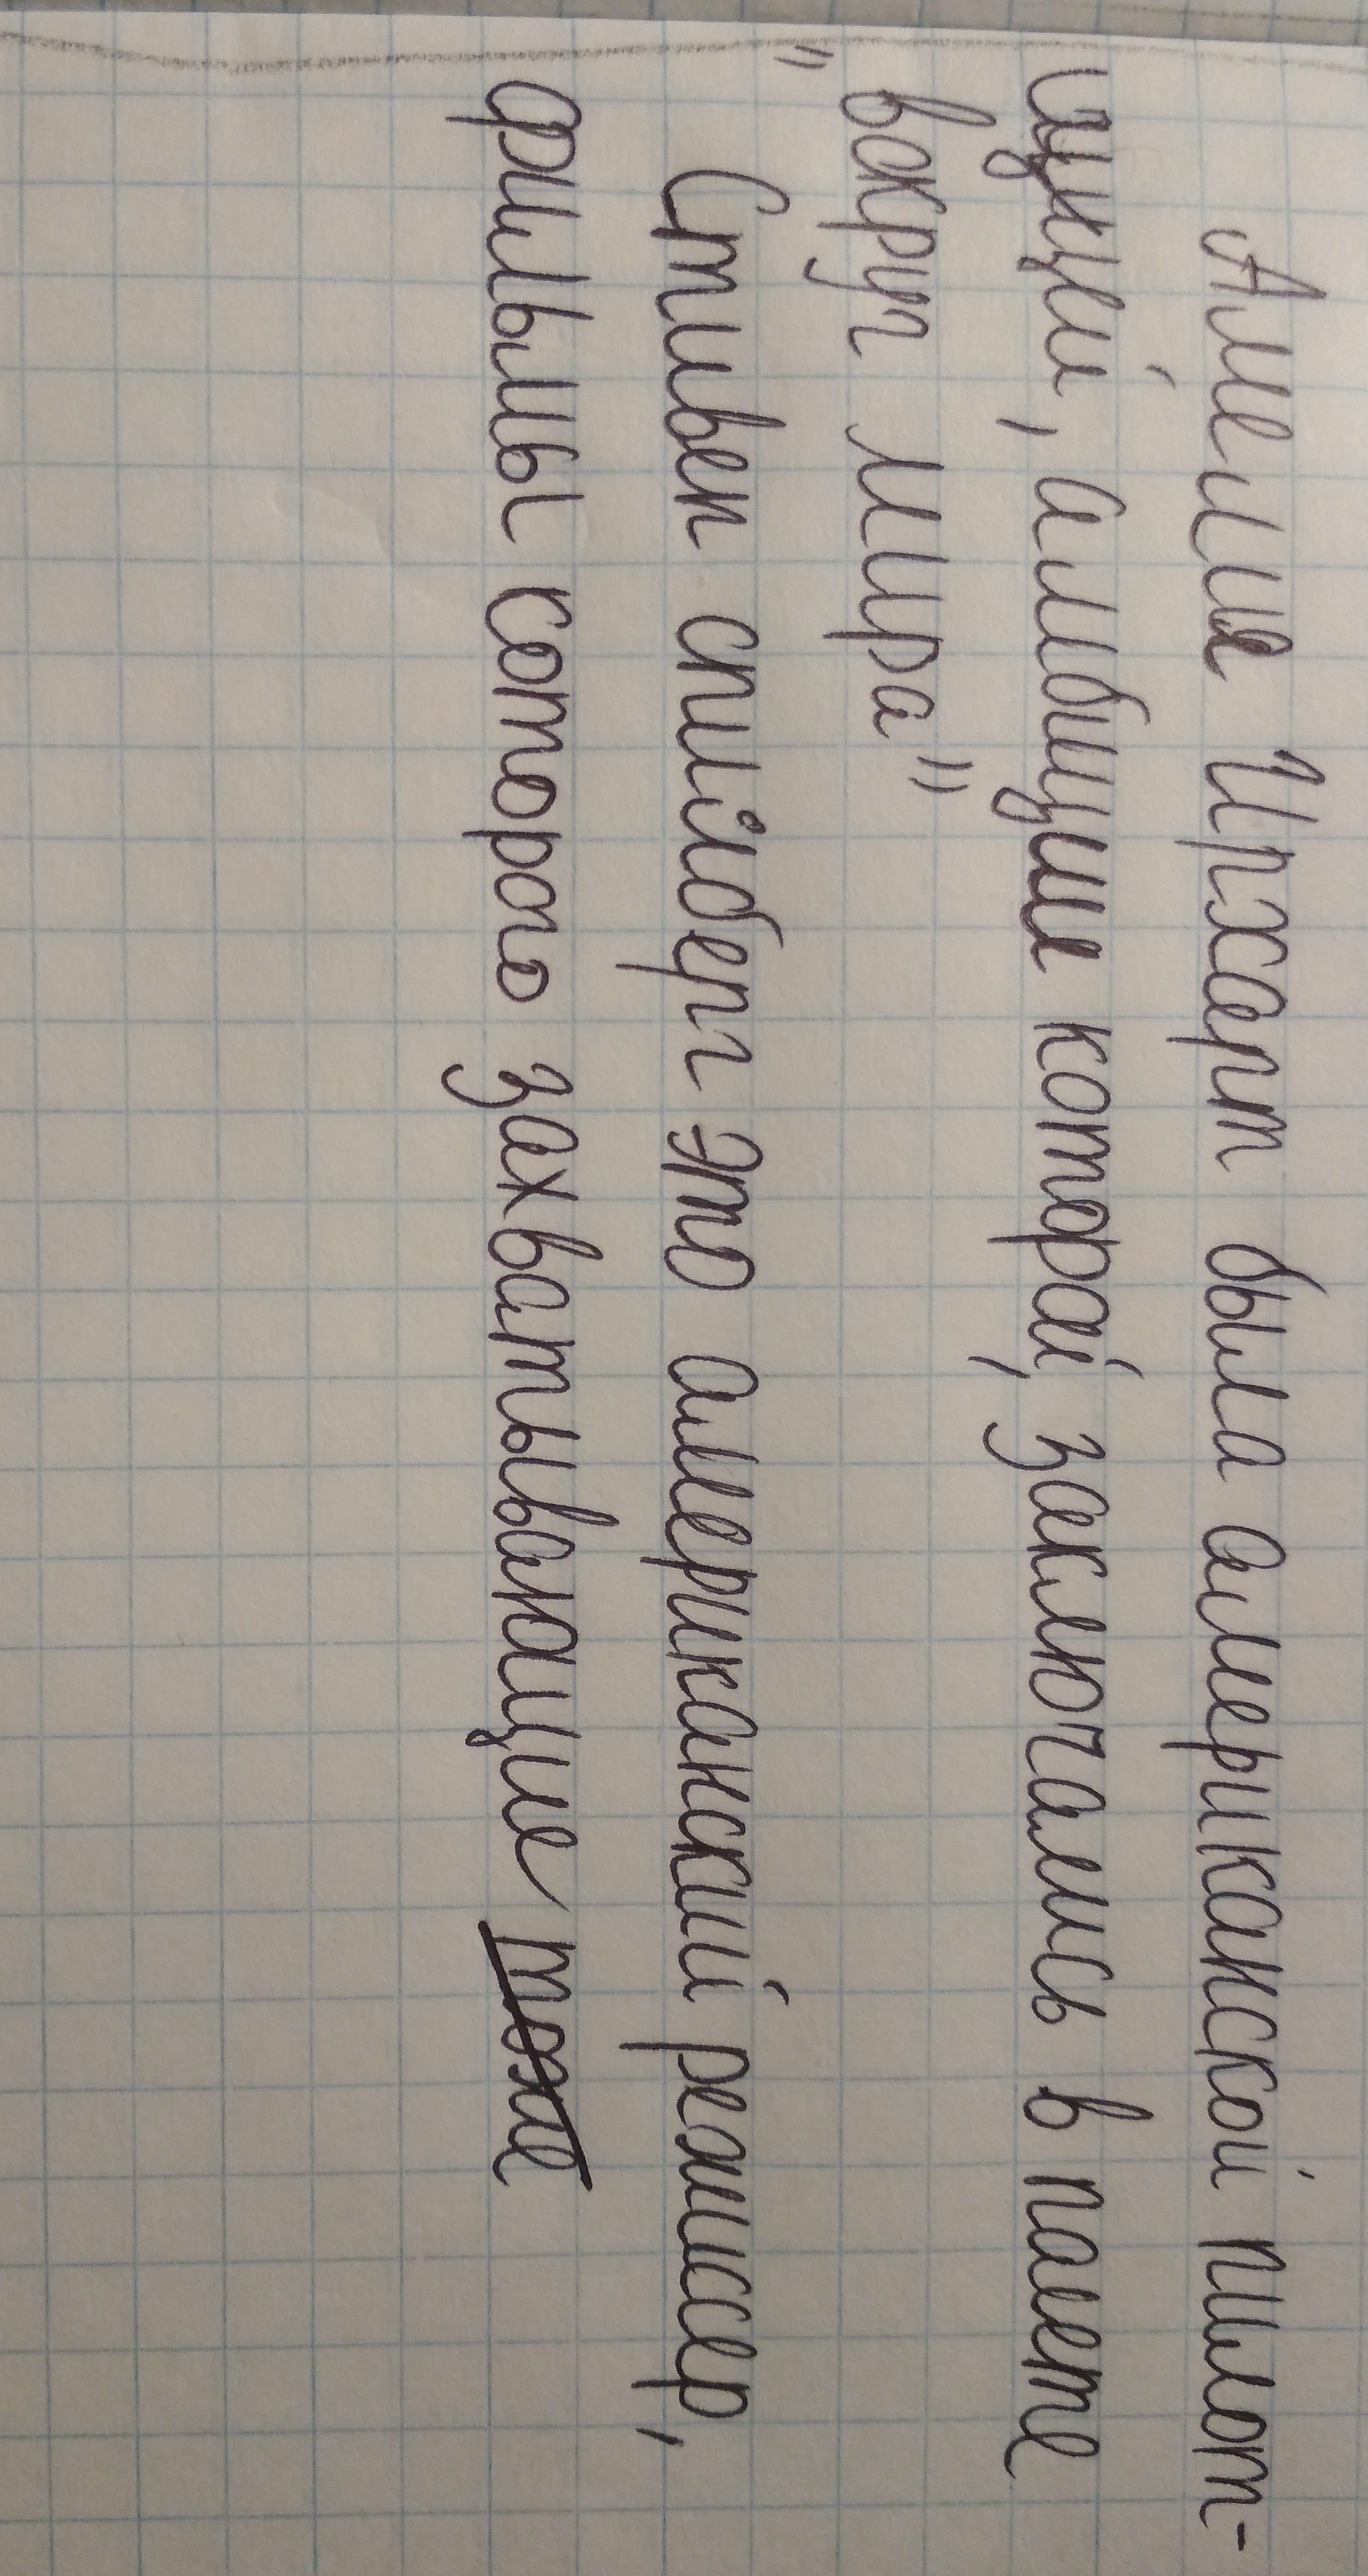 Амелия Ирхарт была американской пилот-
ицкей, амбиции которай, заключались в палете
"вокруг мира"
Стивен спилберг это американский режиссер,
фильмы соторого захватывающие тоже